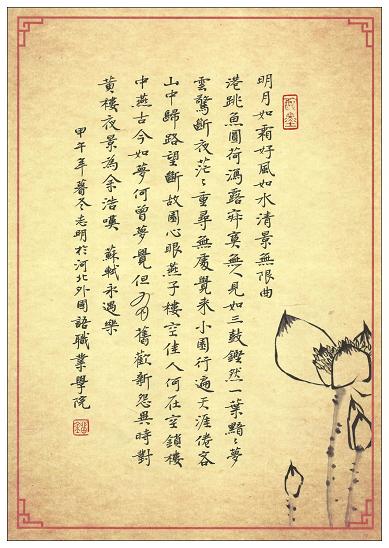 明月如霜好風如水清景無限曲
港跳魚圓荷瀉露寂寞無人見如三鼓鏗然一葉黯〻夢
雲驚斷夜茫〻重尋無處覺來小園行遍天涯倦客
山中歸路望斷故園心眼燕子樓空佳人何在空鎖樓
中燕古今如夢何曾夢覺但有舊歡新怨異時對
黄樓夜景為余浩嘆 蘇軾永遇樂
甲午年暮冬志明於河北外國語職業學院